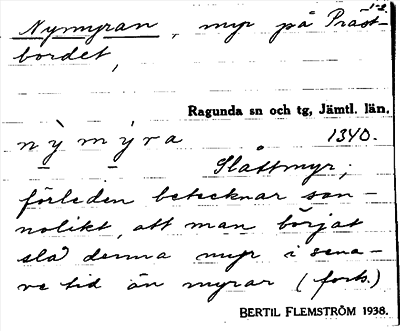 1-2.
Nymyran, myr på Präst-
bordet,
Ragunda sn och tg, Jämtl. län.
nỳmýra 1340.
Slåttmyr;
förleden betecknar san-
nolikt, att man börjat
slå denna myr i sena-
re tid än myrar (forts.)
BERTIL FLEMSTRÖM 1938.